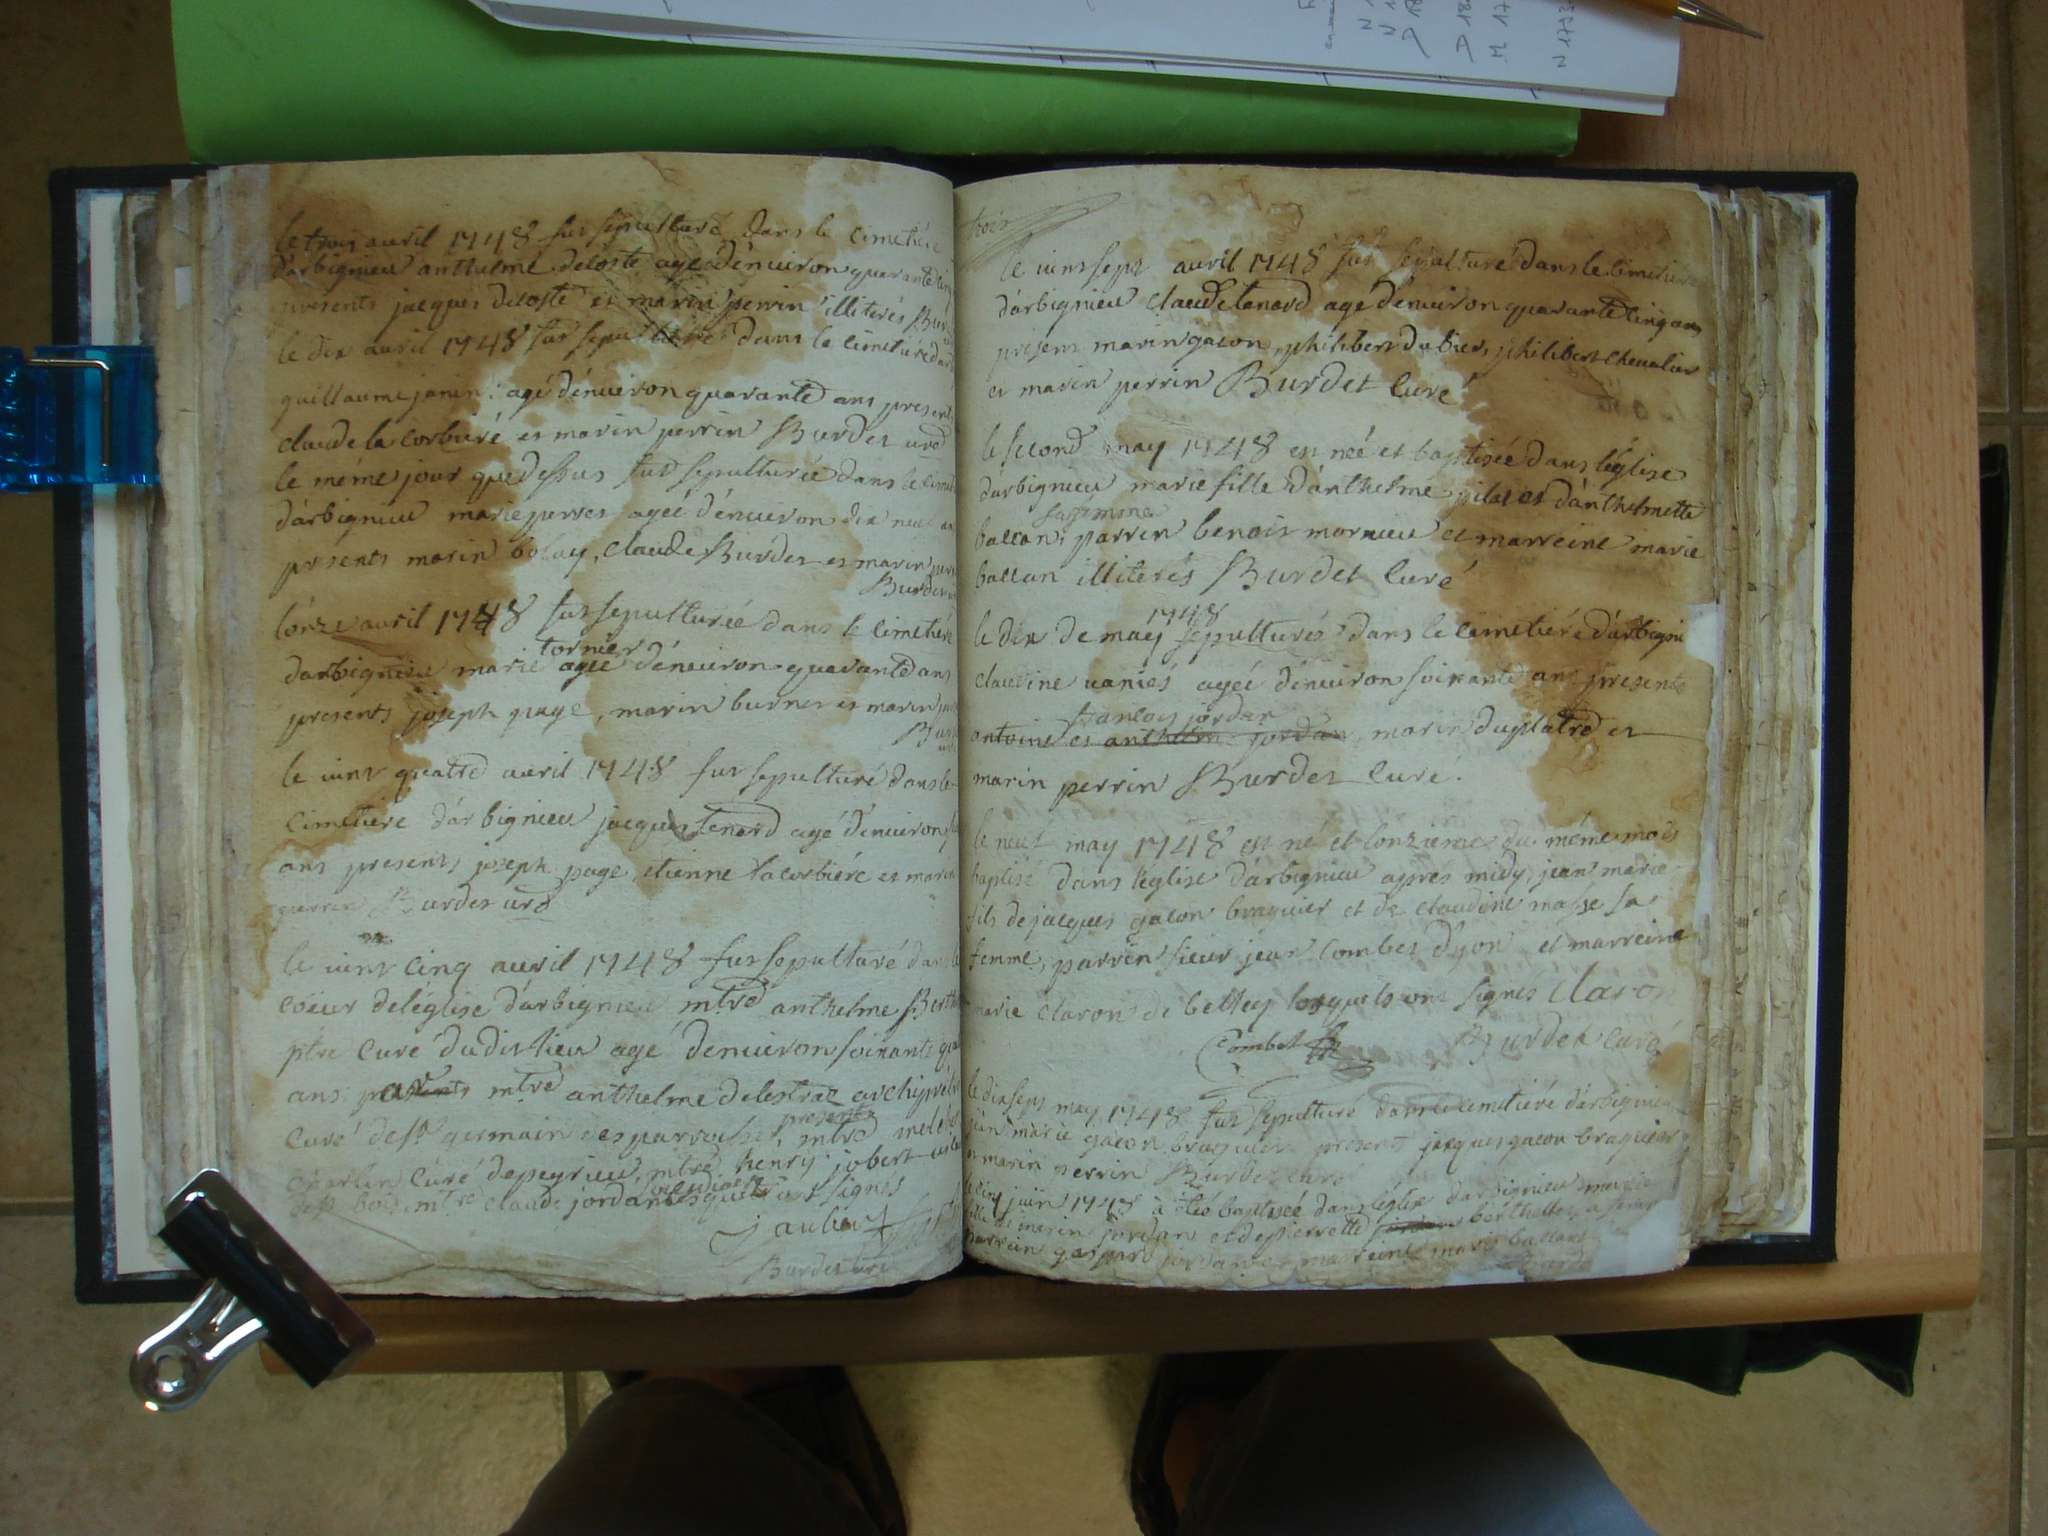 le trois avril 1748 fut sepulturé dans le cimetiére
d'arbignieu anthelme decoste agé d'énuiron quarante cinq
presents jacques decoste et marin perrin illiterés Bur
le dix avril 1748 fut sepulturé dans le cimetiére d'arb
guillaume janin agé d'énuiron quarante ans presents
claude la corbiere et marin perrin Burdet curé
le méme jour que dessus fut sepulturée dans le cimet
d'arbignieu marie perret ageé d'énuiron dix neuf ans
presents marin bolay, claude Burdet et marin perr
Burdet
l'onze avril 1748 fut sepulturée dans le cimetiére
tornier
d'arbignieu marie ageé d'énuiron quarante ans
presents joseph page, marin burnet et marin
Burd
le vint quatre avril 1748 fut sepulturé dans le
cimetiere d'arbignieu jacques tenard agé d'énuiron
ans presents joseph page, etienne lacorbiére et marin
perrin Burdet curé
le vint cinq avril 1748 fut sepulturé dans le
coeur de l'églize d'arbignieu mtre anthelme Berth
ptre curé du dit lieu agé d'enuiron soixante
ans mtre anthelme delestraz archiprétre
presents
curé de st germain es parroisses, mtre
charlin curé de peyrieu, mtre henry jobert
de st bois, mtre claude jordan lesquels ont signés
jaulin
Burdet curé
trois
le vint sept avril 1748 fut sepulturé dans le cimetiere
d'arbignieu claude tenard agé d'énuiron quarante cinq ans
present marin gacon, philibert dubier, philibert chevalier
et marin perrin Burdet curé
le second may 1748 est née et baptisée dans l'église
d'arbignieu marie fille d'anthelme pilat et d'anthelmette
sa femme
ballan, parrin benoit mornieu et marreine marie
ballan illiterés Burdet curé
1748
le dix de may sepulturés dans le cimetiére d'arbignieu
claudine vaniés ageé d'énuiron soixante ans presents
francois jordan
antoine et anthelme jordan, marin duplatre et
marin perrin Burdet curé.
le neuf may 1748 est né et l'onziéme du méme mois
baptisé dans l'églize d'arbignieu aprés midy jean marie
fils de jacques gacon braquier et de claudine masse sa
femme, parrein sieur jean combet d'yon et marreine
marie claron de belley lesquels ont signés Claron
Combet Burdet curé
le dixsept may 1748 fut sepulturé dans le cimetiére d'arbignieu
jean marie gacon braquier present jacques gacon braquier
et marin perrin Burdet curé
le cinq juin 1748 à été baptisée dans l'églize d'arbignieu marie
fille de marin jordan et de pierrette berthet sa feme
parrein gaspard jordan et marreine marie ballan